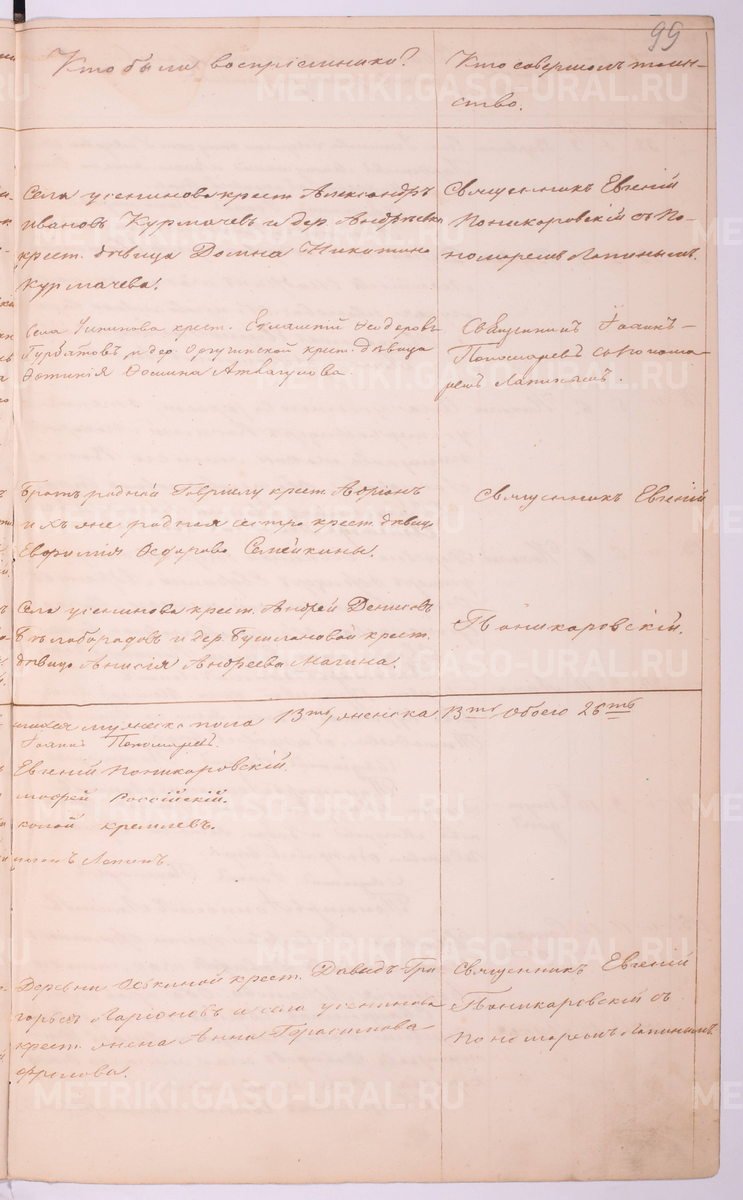 99
Кто были воспріемники?
Кто совершалъ таин-
ство.
Села усенинова крест. Александръ
ивановъ Курмачевъ и дер. Андреевки
крест. дѣвица Домна Никитина
Курмачева.
Священникъ Евгеній
Поникаровскій съ По-
номаремъ Лапинымъ.
крест. Ѳедоровъ
и дер. крест. дѣвица
Ѳотинія Ѳомина
Священникъ Іоаннъ
Пономаревъ съ Понома-
ремъ Лапинымъ.
Братъ родной Гавріилу крест. Ларіонъ
и родная сестра крест. дѣвица
Евфимія Ѳедорова Семейкины.
Священникъ Евгеній
Села усенинова крест. Андрей Денисовъ
Бѣлобородовъ и дер. Бушлановой крест.
дѣвица Анисія Андреева Магина.
Поникаровскій.
мужеска пола 13ть женска 13ть Обоего 26ть
Іоаннъ Пономаревъ.
Евгеній Поникаровскій.
Россійскій.
Кремлевъ.
Лапинъ.
Деревни крест. Давидъ Гри
горьевъ Ларіоновъ и села усенинова
крест. жена Анна Герасимова
Фролова.
Священникъ Евгеній
Поникаровскій съ
пономаремъ Лапинымъ.
METRIKI.GASO-URAL.RU